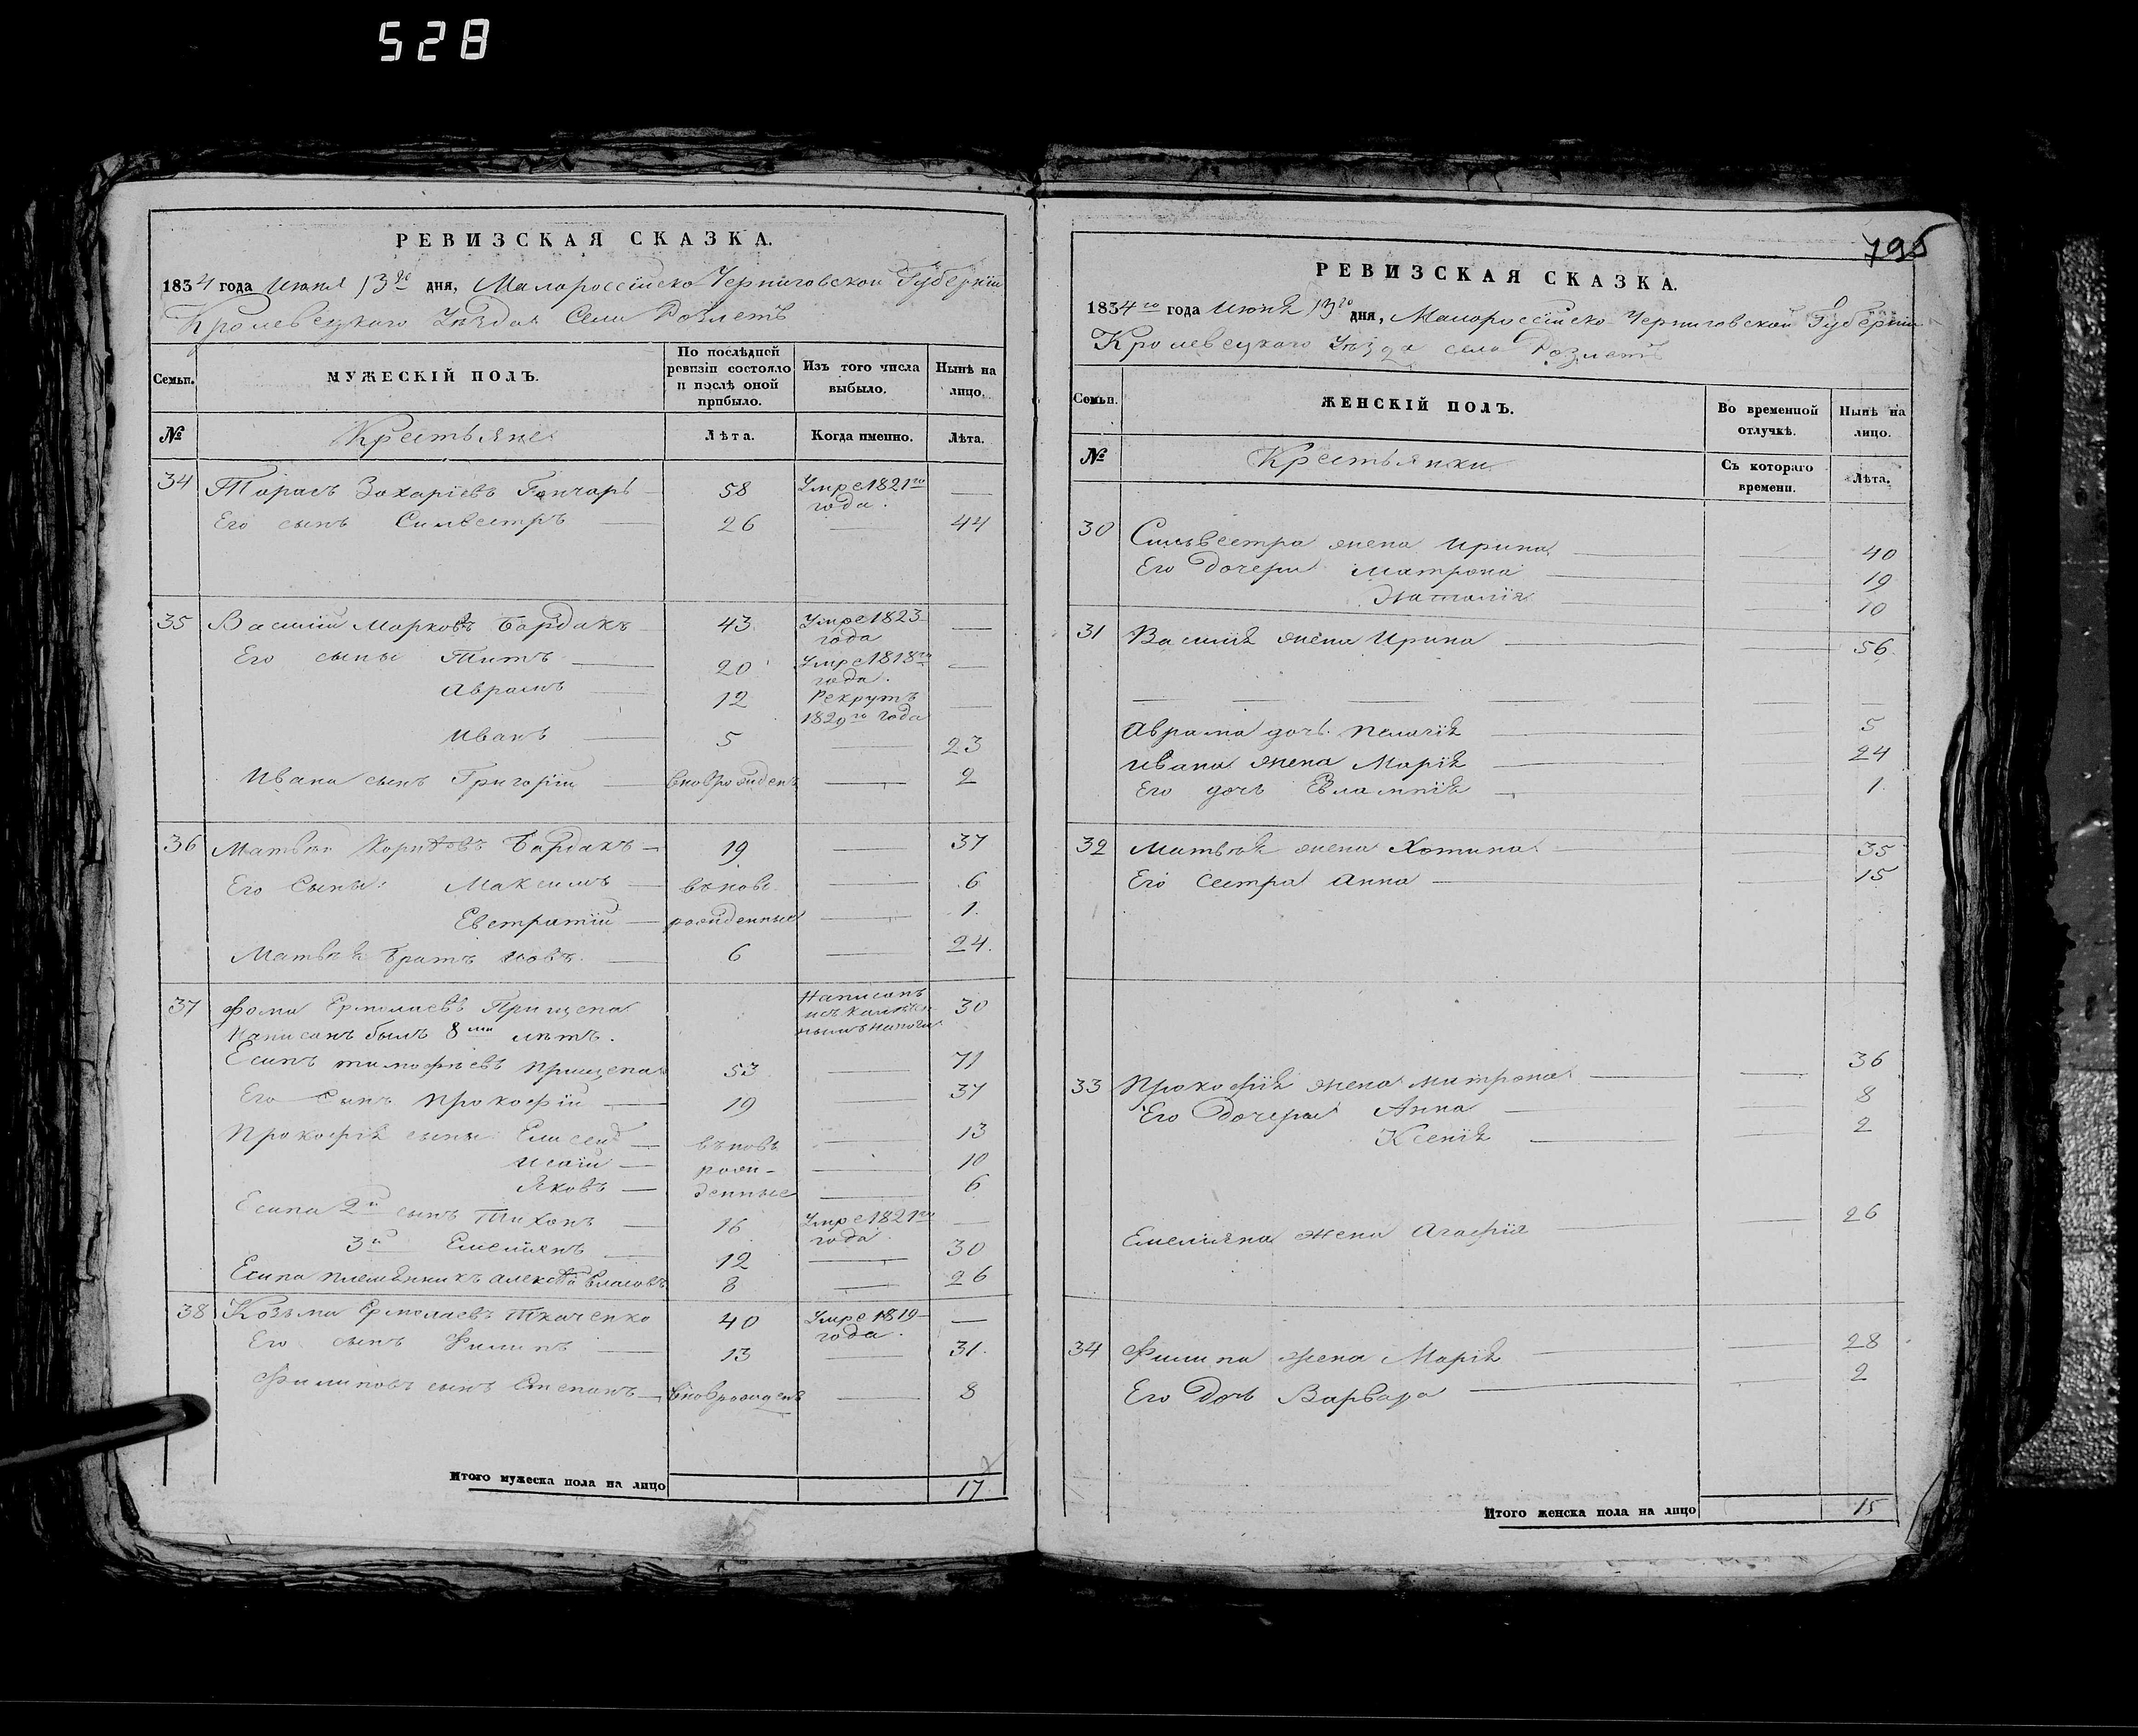 528
РЕВИЗСКАЯ СКАЗКА.
1834 года Июня 13го дня, Малороссійско Черниговской Губерніи
Кролевецкого Уѣзда Села Розлетъ
Семьи.
МУЖЕСКІЙ ПОЛЪ.
По послѣдней ревизіи состояло и послѣ оной прибыло.
Изъ того числа выбыло.
Нынѣ на лицо.
№
Крестьяне
Лѣта.
Когда именно.
Лѣта.
34 Тарасъ Захаріевъ Гончарь 58 Умре 1821го года. —
Его сынъ Силвестръ 26 — 44
35 Василий Марковъ Бардакъ 43 Умре 1823 года —
Его сыны Титъ 20 Умре 1818го года. —
Аврамъ 12 Рекрутъ 1829го года —
Иванъ 5 — 23
Ивана сынъ Григорій вновьрожденъ — 2
36 Матвѣй Бардакъ 19 — 37
Его Сыны: Максимъ вѣновь — 6
Евстратій рожденные — 1.
Матвѣя братъ Иовъ 6 — 24.
37 Фома Ермолаевъ Прищепа Написанъ 30
Написанъ былъ 8ми лѣтъ.
Есипъ тимофѣевъ прищепа 53 — 71
Его Сынъ Прокофій 19 — 37
Прокофія сыны Елисей вѣновь — 13
Исаій рожи- — 10
Яковъ денные — 6
Есипа 2й сынъ Тихонъ 16 Умре 1821го года. —
3й Емелиянъ 12 — 30
Есипа племянникъ алексѣй Власовъ 8 — 26
38 Козьма Ермолаевъ Ткаченко 40 Умре 1819 года. —
Его сынъ Филипъ 13 — 31.
Филиповъ сынъ Степанъ вновьрожденъ — 8
Итого мужеска пола на лицо 17
195
РЕВИЗСКАЯ СКАЗКА.
1834го года Июня 13го дня, Малороссійско Черниговской Губерніи
Кролевецкого Уѣзда села Розлетъ
Семьи.
ЖЕНСКІЙ ПОЛЪ.
Во временной отлучкѣ.
Нынѣ на лицо.
№
Крестьянки
Съ котораго времени.
Лѣта.
30 Сильвестра жена Ирина — 40
Его дочери Матрона — 19
Наталія — 10
31 Василия жена Ирина — 56
— — — — — — —
Аврама дочь Пелагія — 5
Ивана жена Марія — 24
Его дочь Евлампія — 1.
32 Матвѣя жена Хотина — 35
Его Сестра Анна — 15
33 Прокофія жена матрона — 36
Его дочери Анна — 8
Ксенія — 2
Емелияна жена Агафія — 26
34 Филипа жена Марія — 28
Его дочь Варвара — 2
Итого женска пола на лицо 15